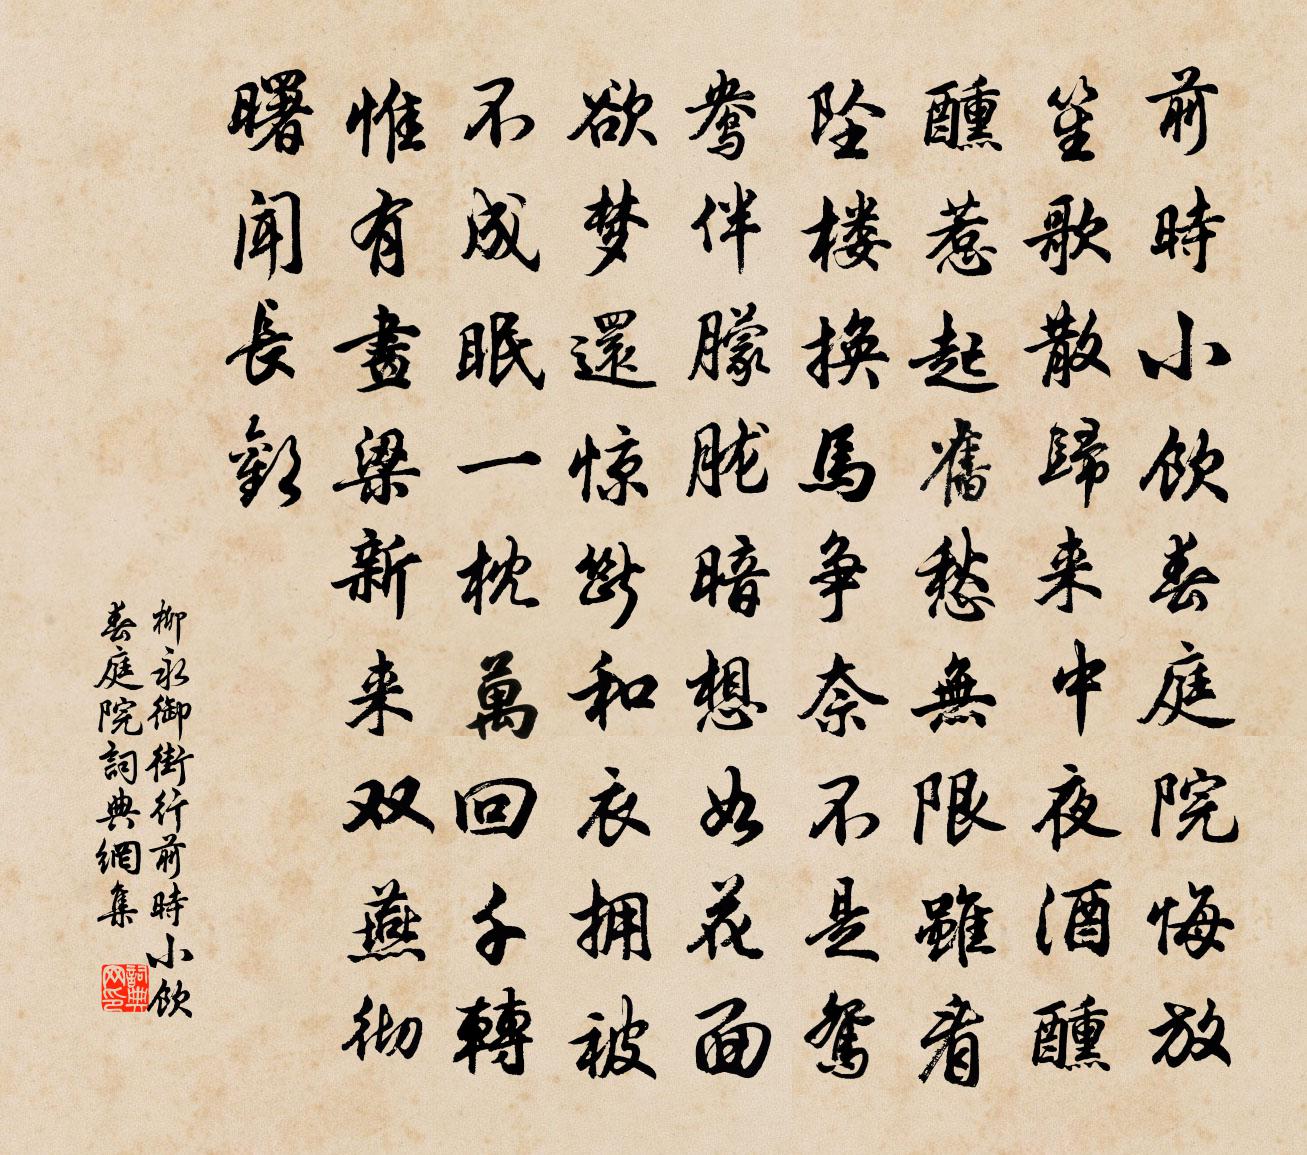 前時小飲春庭院悔放
笙歌散歸来中夜酒醺
醺惹起舊愁無限雖看
坠楼换馬争奈不是鴛
鴦伴朦胧暗想如花面
欲梦還惊斷和衣拥被
不成眠一枕萬回千轉
惟有畫梁新来双燕彻
曙聞長歎
柳永御街行前時小飲
春庭院詞典網集
詞典网印